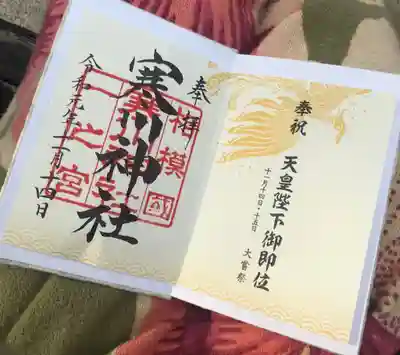 奉拝
寒川神社
令和元年十一月十四日
相模國
一之宮
奉祝
天皇陛下御即位
十一月十四日・十五日
大嘗祭